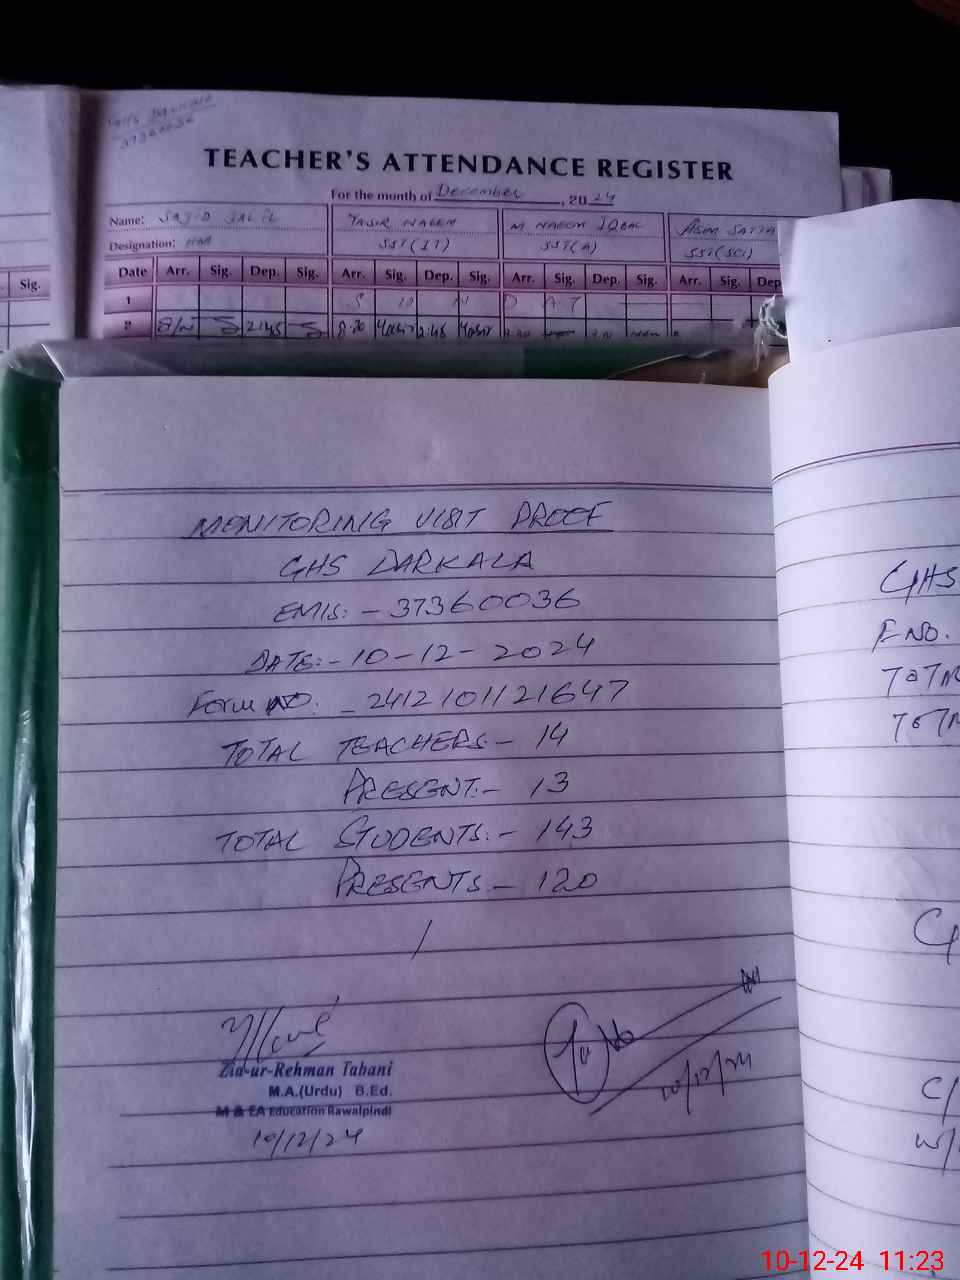 37360036
TEACHER'S ATTENDANCE REGISTER
For the month of December, 2024
Name: SAJID JALIL YASIR NAEEM M NAEEM IQBAL ASIM
Designation: HM SST(IT) SST(A) SST(SCI)
Sig. Date Arr. Sig. Dep. Sig. Arr. Sig. Dep. Sig. Arr. Sig. Dep. Sig. Arr. Sig. Dep
1 S U N D A Y
2 2:45 8:20 Yasir 2:45 Yasir
MONITORING VISIT PROOF
GHS DARKALA
EMIS:- 37360036
DATE:- 10-12-2024
Form NO. - 2412101121647
TOTAL TEACHERS:- 14
PRESENT:- 13
TOTAL STUDENTS:- 143
PRESENTS - 120
Zia-ur-Rehman Tabani
M.A.(Urdu) B.Ed.
M & EA Education Rawalpindi
10/12/24
10/12/24
GHS
F NO.
TOTA
TOTA
10-12-24 11:23